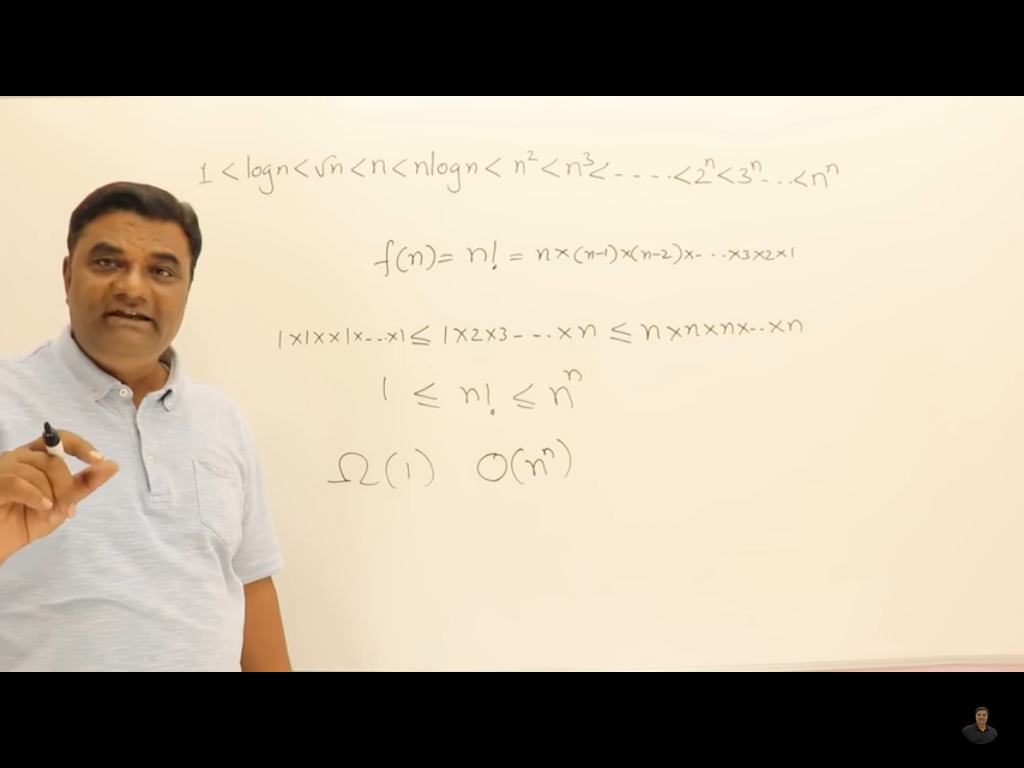 1 < log n < √n < n < n log n < n² < n³ < - - - - - < 2ⁿ < 3ⁿ ... < nⁿ
f(n) = n! = n × (n-1) × (n-2) × - ... × 3 × 2 × 1
1 × 1 × × 1 × ... × 1 ≤ 1 × 2 × 3 - - - ... × n ≤ n × n × n × ... × n
1 ≤ n! ≤ nⁿ
Ω(1) O(nⁿ)